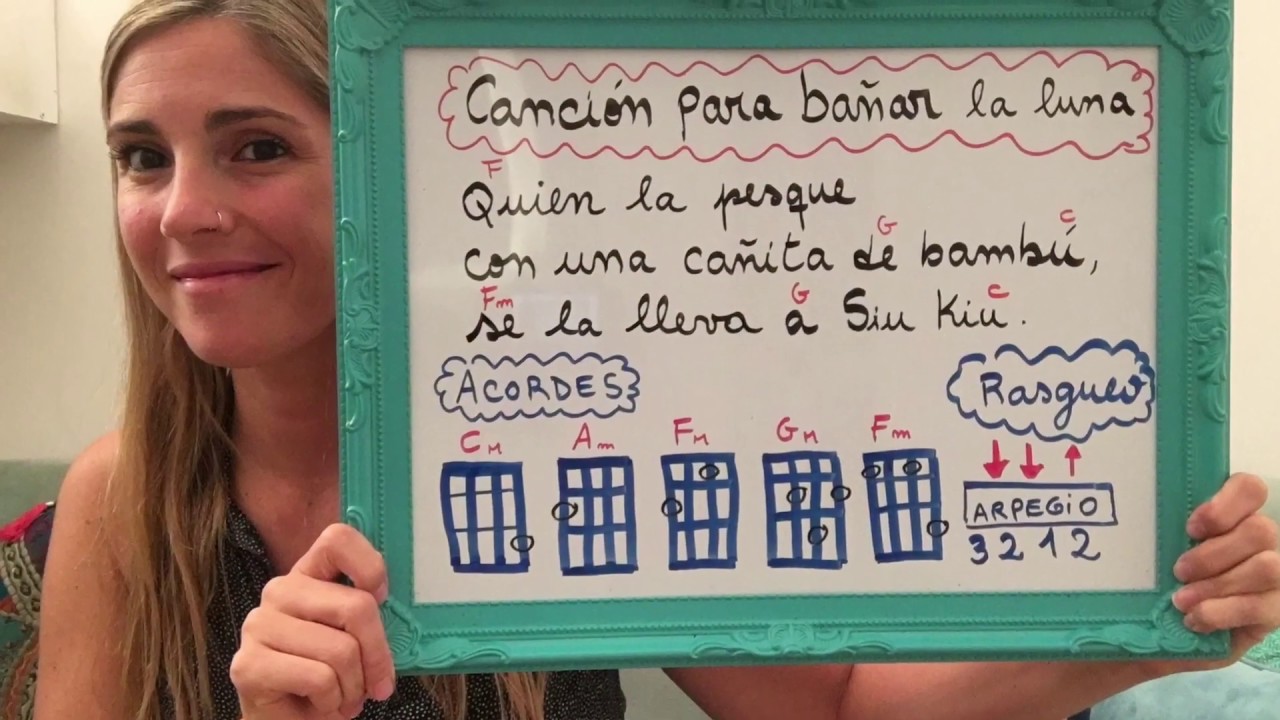 Canción para bañar la luna
F
Quien la pesque
G C
con una cañita de bambú,
Fm G C
se la lleva a Siu Kiu.
ACORDES Rasgueo
CM Am FM GM Fm
ARPEGIO
3 2 1 2